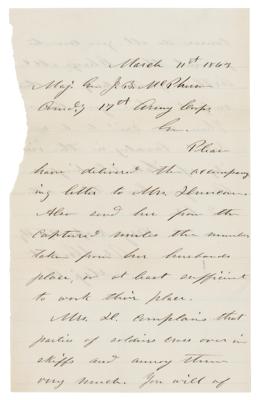 March 11th 1863
Maj. Gen. J. B. McPherson
Comdg 17th Army Corps
Gen.
Please
have delivered the accompany
ing letter to Mrs. Duncan.
Also send her from the
captured mules the number
taken from her husbands
place, or at least sufficient
to work their place.
Mrs. D. complains that
parties of soldiers cross over in
skiffs and annoy them
very much. You will of